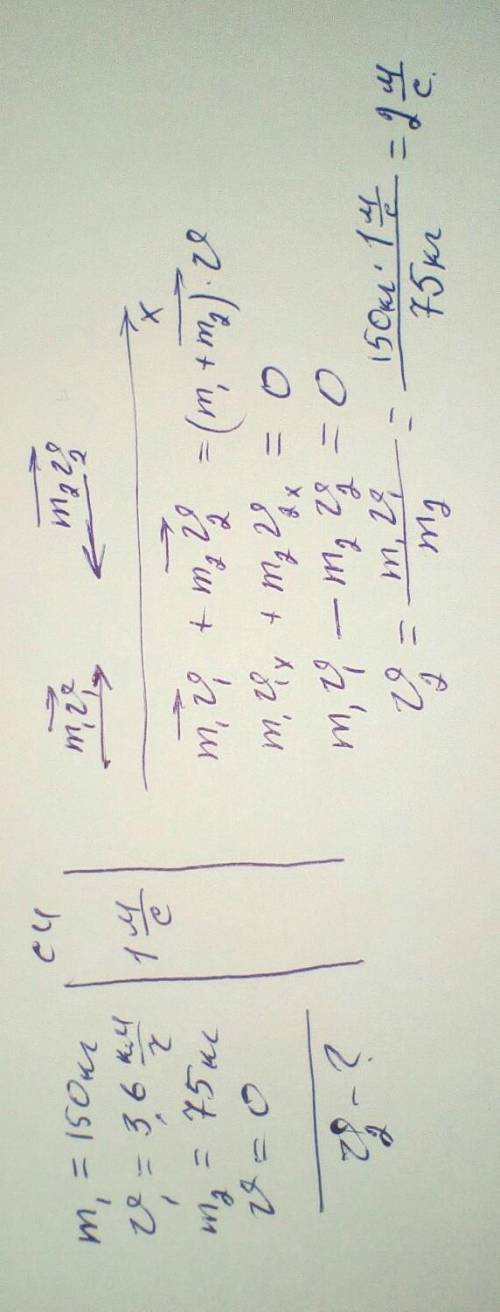 m₁ = 150кг
υ₁ = 3,6 км/г
m₂ = 75кг
υ = 0
υ₂ - ?
СИ
1 м/с
m₁υ₁
m₂υ₂
x
m₁υ₁ + m₂υ₂ = (m₁ + m₂)·υ
m₁υ₁ₓ + m₂υ₂ₓ = 0
m₁υ₁ - m₂υ₂ = 0
υ₂ = m₁υ₁/m₂ = 150кг·1 м/с / 75кг = 2 м/с